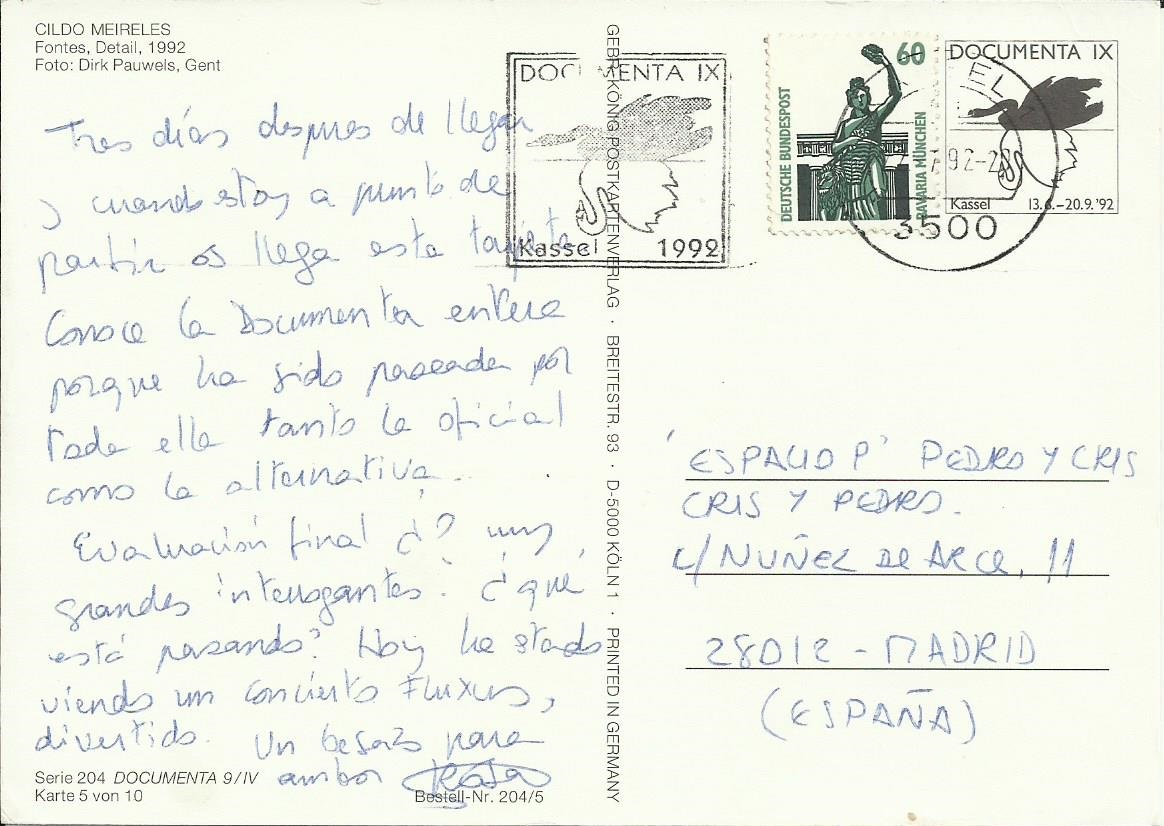 CILDO MEIRELES
Fontes, Detail, 1992
Foto: Dirk Pauwels, Gent
Tres días despues de llegar
y cuando estoy a punto de
partir os llega esta tarjeta
Conoce la Documenta entera
porque ha sido paseada por
toda ella tanto la oficial
como la alternativa..
Evaluación final ¿? muy
grandes interrogantes. ¿qué
está pasando? Hoy he stado
viendo un concierto Fluxus,
divertido. Un besazo para
ambos
Serie 204 DOCUMENTA 9/IV
Karte 5 von 10
Bestell-Nr. 204/5
GEBR. KÖNIG POSTKARTENVERLAG · BREITESTR. 93 · D-5000 KÖLN 1 · PRINTED IN GERMANY
DOCUMENTA IX
Kassel 1992
60
DEUTSCHE BUNDESPOST
BAVARIA MÜNCHEN
DOCUMENTA IX
Kassel 13.6.–20.9.'92
3500
'ESPACIO P' PEDRO Y CRIS
CRIS Y PEDRO.
C/ NUÑEZ DE ARCE, 11
28012 - MADRID
(ESPAÑA)